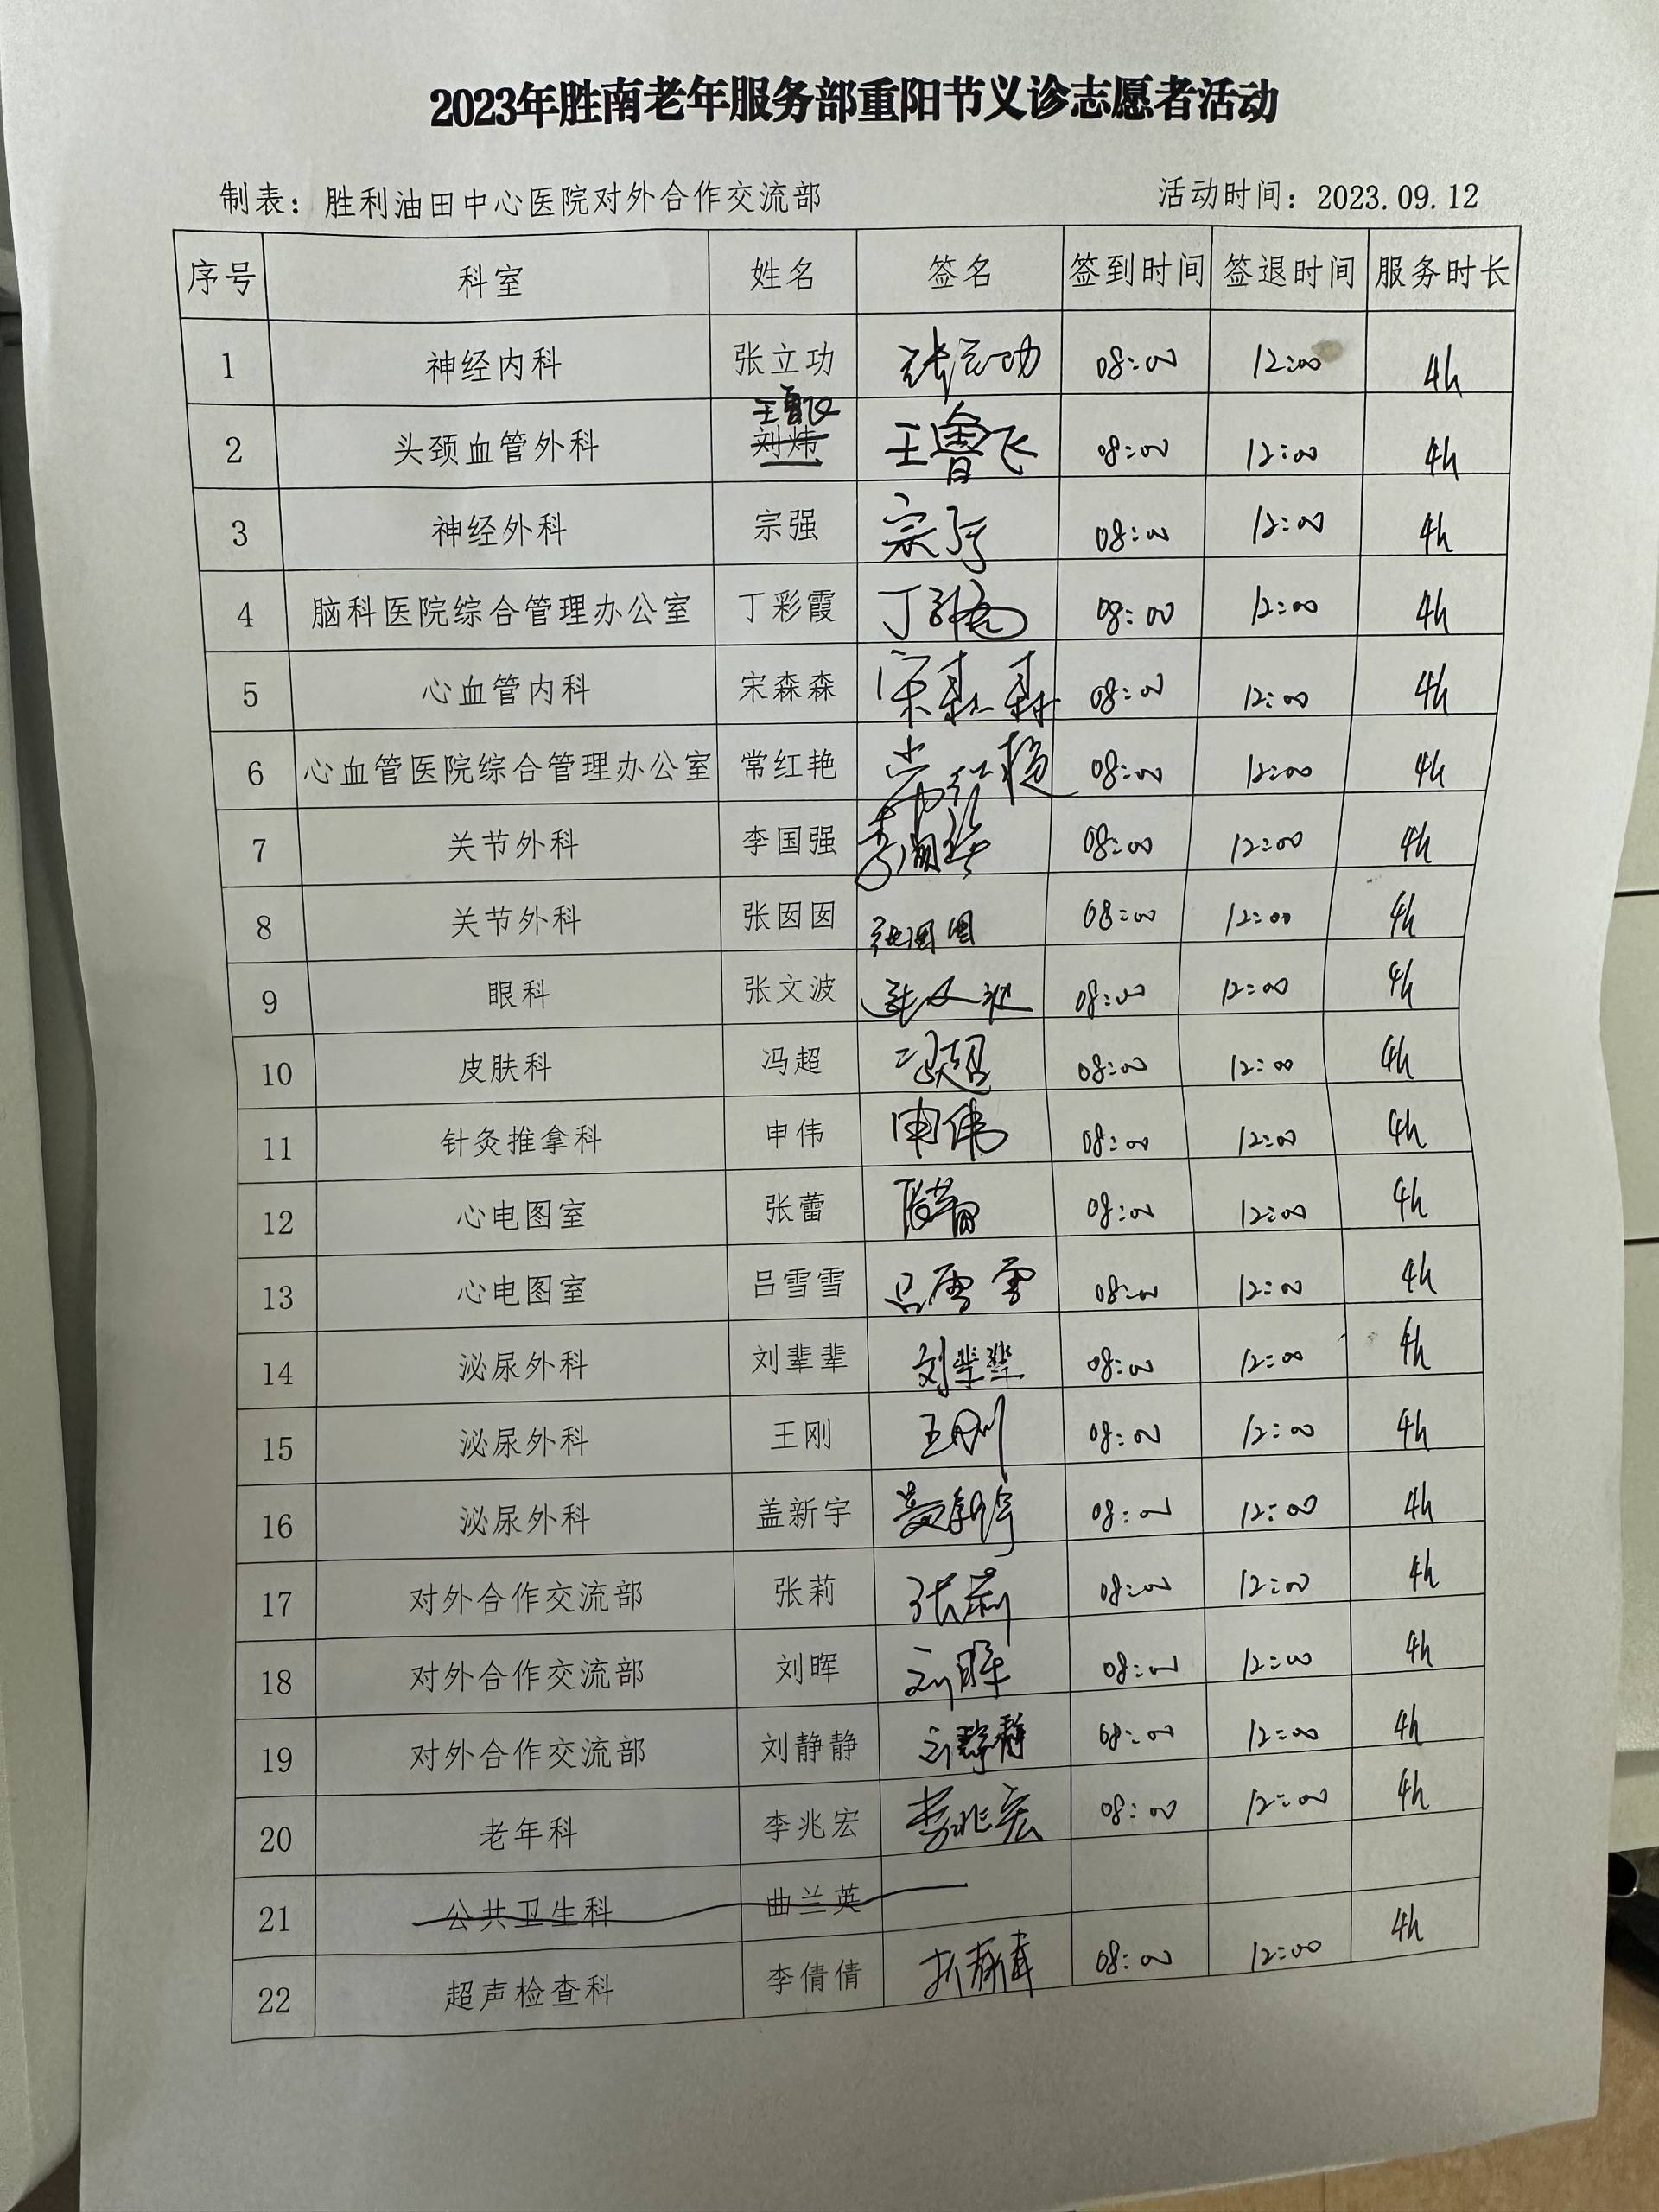 2023年胜南老年服务部重阳节义诊志愿者活动
制表：胜利油田中心医院对外合作交流部 活动时间：2023.09.12
序号 科室 姓名 签名 签到时间 签退时间 服务时长
1 神经内科 张立功 张立功 08:00 12:00 4h
王鲁飞
2 头颈血管外科 刘炜 王鲁飞 08:00 12:00 4h
3 神经外科 宗强 宗强 08:00 12:00 4h
4 脑科医院综合管理办公室 丁彩霞 丁彩霞 08:00 12:00 4h
5 心血管内科 宋森森 宋森森 08:00 12:00 4h
6 心血管医院综合管理办公室 常红艳 常红艳 08:00 12:00 4h
7 关节外科 李国强 李国强 08:00 12:00 4h
8 关节外科 张囡囡 张囡囡 08:00 12:00 4h
9 眼科 张文波 张文波 08:00 12:00 4h
10 皮肤科 冯超 冯超 08:00 12:00 4h
11 针灸推拿科 申伟 申伟 08:00 12:00 4h
12 心电图室 张蕾 张蕾 08:00 12:00 4h
13 心电图室 吕雪雪 吕雪雪 08:00 12:00 4h
14 泌尿外科 刘辈辈 刘辈辈 08:00 12:00 4h
15 泌尿外科 王刚 王刚 08:00 12:00 4h
16 泌尿外科 盖新宇 盖新宇 08:00 12:00 4h
17 对外合作交流部 张莉 张莉 08:00 12:00 4h
18 对外合作交流部 刘晖 刘晖 08:00 12:00 4h
19 对外合作交流部 刘静静 刘静静 08:00 12:00 4h
20 老年科 李兆宏 李兆宏 08:00 12:00 4h
21 公共卫生科 曲兰英
22 超声检查科 李倩倩 李倩倩 08:00 12:00 4h